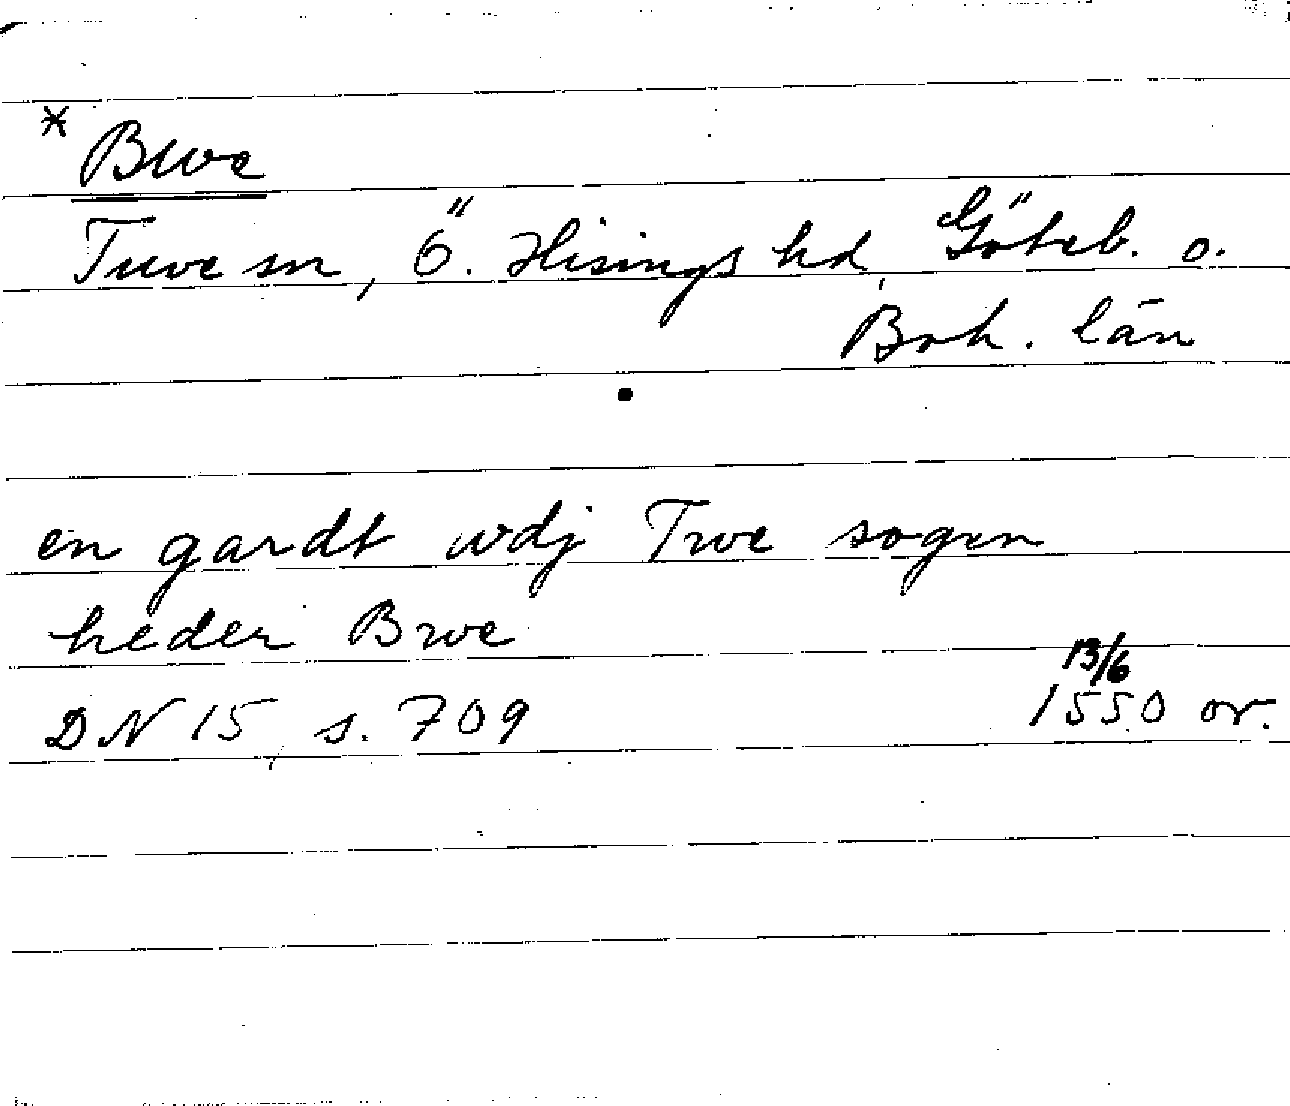 * Buve
Tuve sn, Ö. Hisings hd, Göteb. o.
Boh. län
en gardt wdj Twe sogen
heder Bwe
13/6
DN 15, s. 709 1550 or.